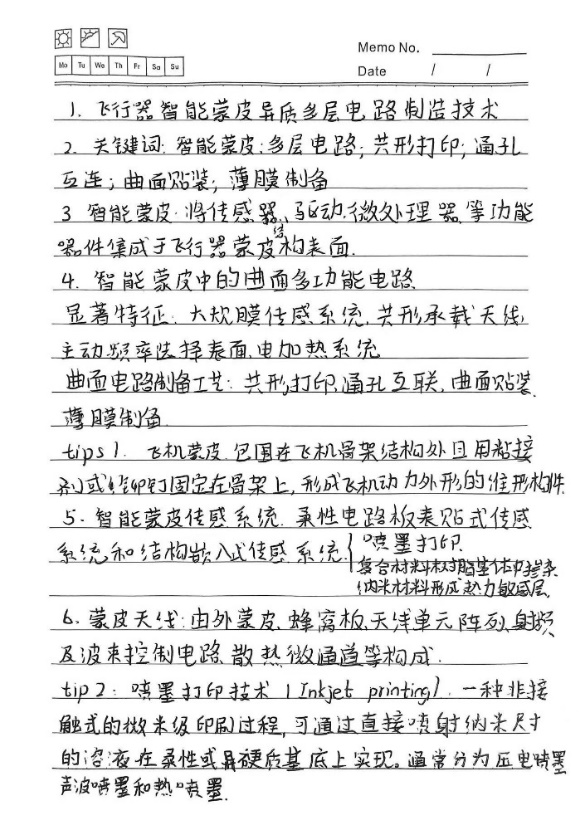 Memo No.
Mo Tu We Th Fr Sa Su
Date / /
1. 飞行器智能蒙皮异质多层电路制造技术
2. 关键词:智能蒙皮;多层电路;共形打印;通孔
互连;曲面贴装;薄膜制备
3 智能蒙皮:将传感器、驱动、微处理器等功能
器件集成于飞行器蒙皮结构表面.
4. 智能蒙皮中的曲面多功能电路
显著特征:大規膜传感系统,共形承载天线,
主动频率选择表面,电加热系统
曲面电路制备工艺:共形打印,通孔互联,曲面贴装
薄膜制备.
tips 1. 飞机蒙皮.包围在飞机骨架结构外且用粘接
剂或铆钉固定在骨架上,形成飞机动力外形的维形构件
5. 智能蒙皮传感系统.柔性电路板表贴式传感
系统和结构嵌入式传感系统{喷墨打印.
复合材料树脂基体中掺杂
纳米材料形成热力敏感层
6. 蒙皮天线:由外蒙皮、蜂窝板、天线单元阵列、射频
及波束控制电路、散热微通道等构成.
tip 2: 喷墨打印技术(Inkjet printing).一种非接
触式的微米级印刷过程,可通过直接喷射纳米尺寸
的溶液在柔性或硬质基底上实现。通常分为压电喷墨
声波喷墨和热喷墨.